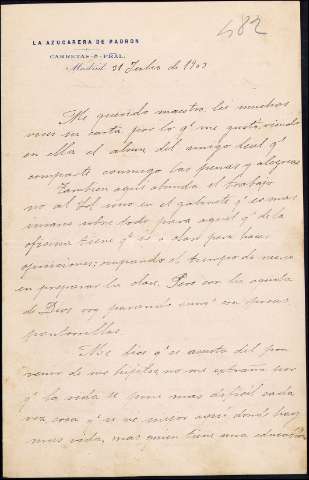 482
LA AZUCARERA DE PADRON
CARRETAS-8-PRAL.
Madrid 31 Julio de 1903
Mi querido maestro, leí muchas
veces su carta por lo q' me gusta, viendo
en ella el alma del amigo leal q'
comparte conmigo las penas y alegrias
Tambien aquí abunda el trabajo
no al sol sino en el gabinete q' es mas
sobre todo para aquel q' de la
oficina tiene q' ir a clase para hacer
oposiciones; ocupando el tiempo de
en preparar la clase. Pero con la ayuda
de Dios
pantorrillas.
Me dice q' se acuesta del por
venir de sus hijitos, no me extraña por
q' la vida se pone mas dificil cada
vez cosa q' se ve mejor aquí donde hay
mas vida, mas quien tiene una educación